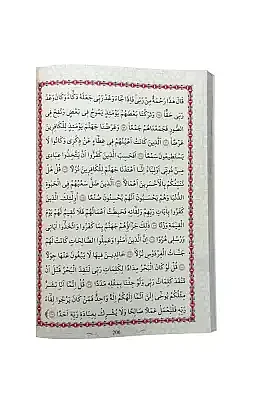 قَالَ هَٰذَا رَحْمَةٌ مِنْ رَبِّي فَإِذَا جَاءَ وَعْدُ رَبِّي جَعَلَهُ دَكَّاءَ وَكَانَ وَعْدُ
رَبِّي حَقًّا وَتَرَكْنَا بَعْضَهُمْ يَوْمَئِذٍ يَمُوجُ فِي بَعْضٍ وَنُفِخَ فِي
الصُّورِ فَجَمَعْنَاهُمْ جَمْعًا وَعَرَضْنَا جَهَنَّمَ يَوْمَئِذٍ لِلْكَافِرِينَ
عَرْضًا الَّذِينَ كَانَتْ أَعْيُنُهُمْ فِي غِطَاءٍ عَنْ ذِكْرِي وَكَانُوا لَا
يَسْتَطِيعُونَ سَمْعًا أَفَحَسِبَ الَّذِينَ كَفَرُوا أَنْ يَتَّخِذُوا عِبَادِي
مِنْ دُونِي أَوْلِيَاءَ إِنَّا أَعْتَدْنَا جَهَنَّمَ لِلْكَافِرِينَ نُزُلًا قُلْ هَلْ
نُنَبِّئُكُمْ بِالْأَخْسَرِينَ أَعْمَالًا الَّذِينَ ضَلَّ سَعْيُهُمْ فِي الْحَيٰوةِ
الدُّنْيَا وَهُمْ يَحْسَبُونَ أَنَّهُمْ يُحْسِنُونَ صُنْعًا أُولَٰئِكَ الَّذِينَ
كَفَرُوا بِآيَاتِ رَبِّهِمْ وَلِقَائِهِ فَحَبِطَتْ أَعْمَالُهُمْ فَلَا نُقِيمُ لَهُمْ يَوْمَ
الْقِيٰمَةِ وَزْنًا ذَٰلِكَ جَزَاؤُهُمْ جَهَنَّمُ بِمَا كَفَرُوا وَاتَّخَذُوا آيَاتِي
وَرُسُلِي هُزُوًا إِنَّ الَّذِينَ آمَنُوا وَعَمِلُوا الصَّالِحَاتِ كَانَتْ لَهُمْ
جَنَّاتُ الْفِرْدَوْسِ نُزُلًا خَالِدِينَ فِيهَا لَا يَبْغُونَ عَنْهَا حِوَلًا
قُلْ لَوْ كَانَ الْبَحْرُ مِدَادًا لِكَلِمَاتِ رَبِّي لَنَفِدَ الْبَحْرُ قَبْلَ أَنْ
تَنْفَدَ كَلِمَاتُ رَبِّي وَلَوْ جِئْنَا بِمِثْلِهِ مَدَدًا قُلْ إِنَّمَا أَنَا بَشَرٌ
مِثْلُكُمْ يُوحَىٰ إِلَيَّ أَنَّمَا إِلَٰهُكُمْ إِلَٰهٌ وَاحِدٌ فَمَنْ كَانَ يَرْجُوا لِقَاءَ
رَبِّهِ فَلْيَعْمَلْ عَمَلًا صَالِحًا وَلَا يُشْرِكْ بِعِبَادَةِ رَبِّهِ أَحَدًا